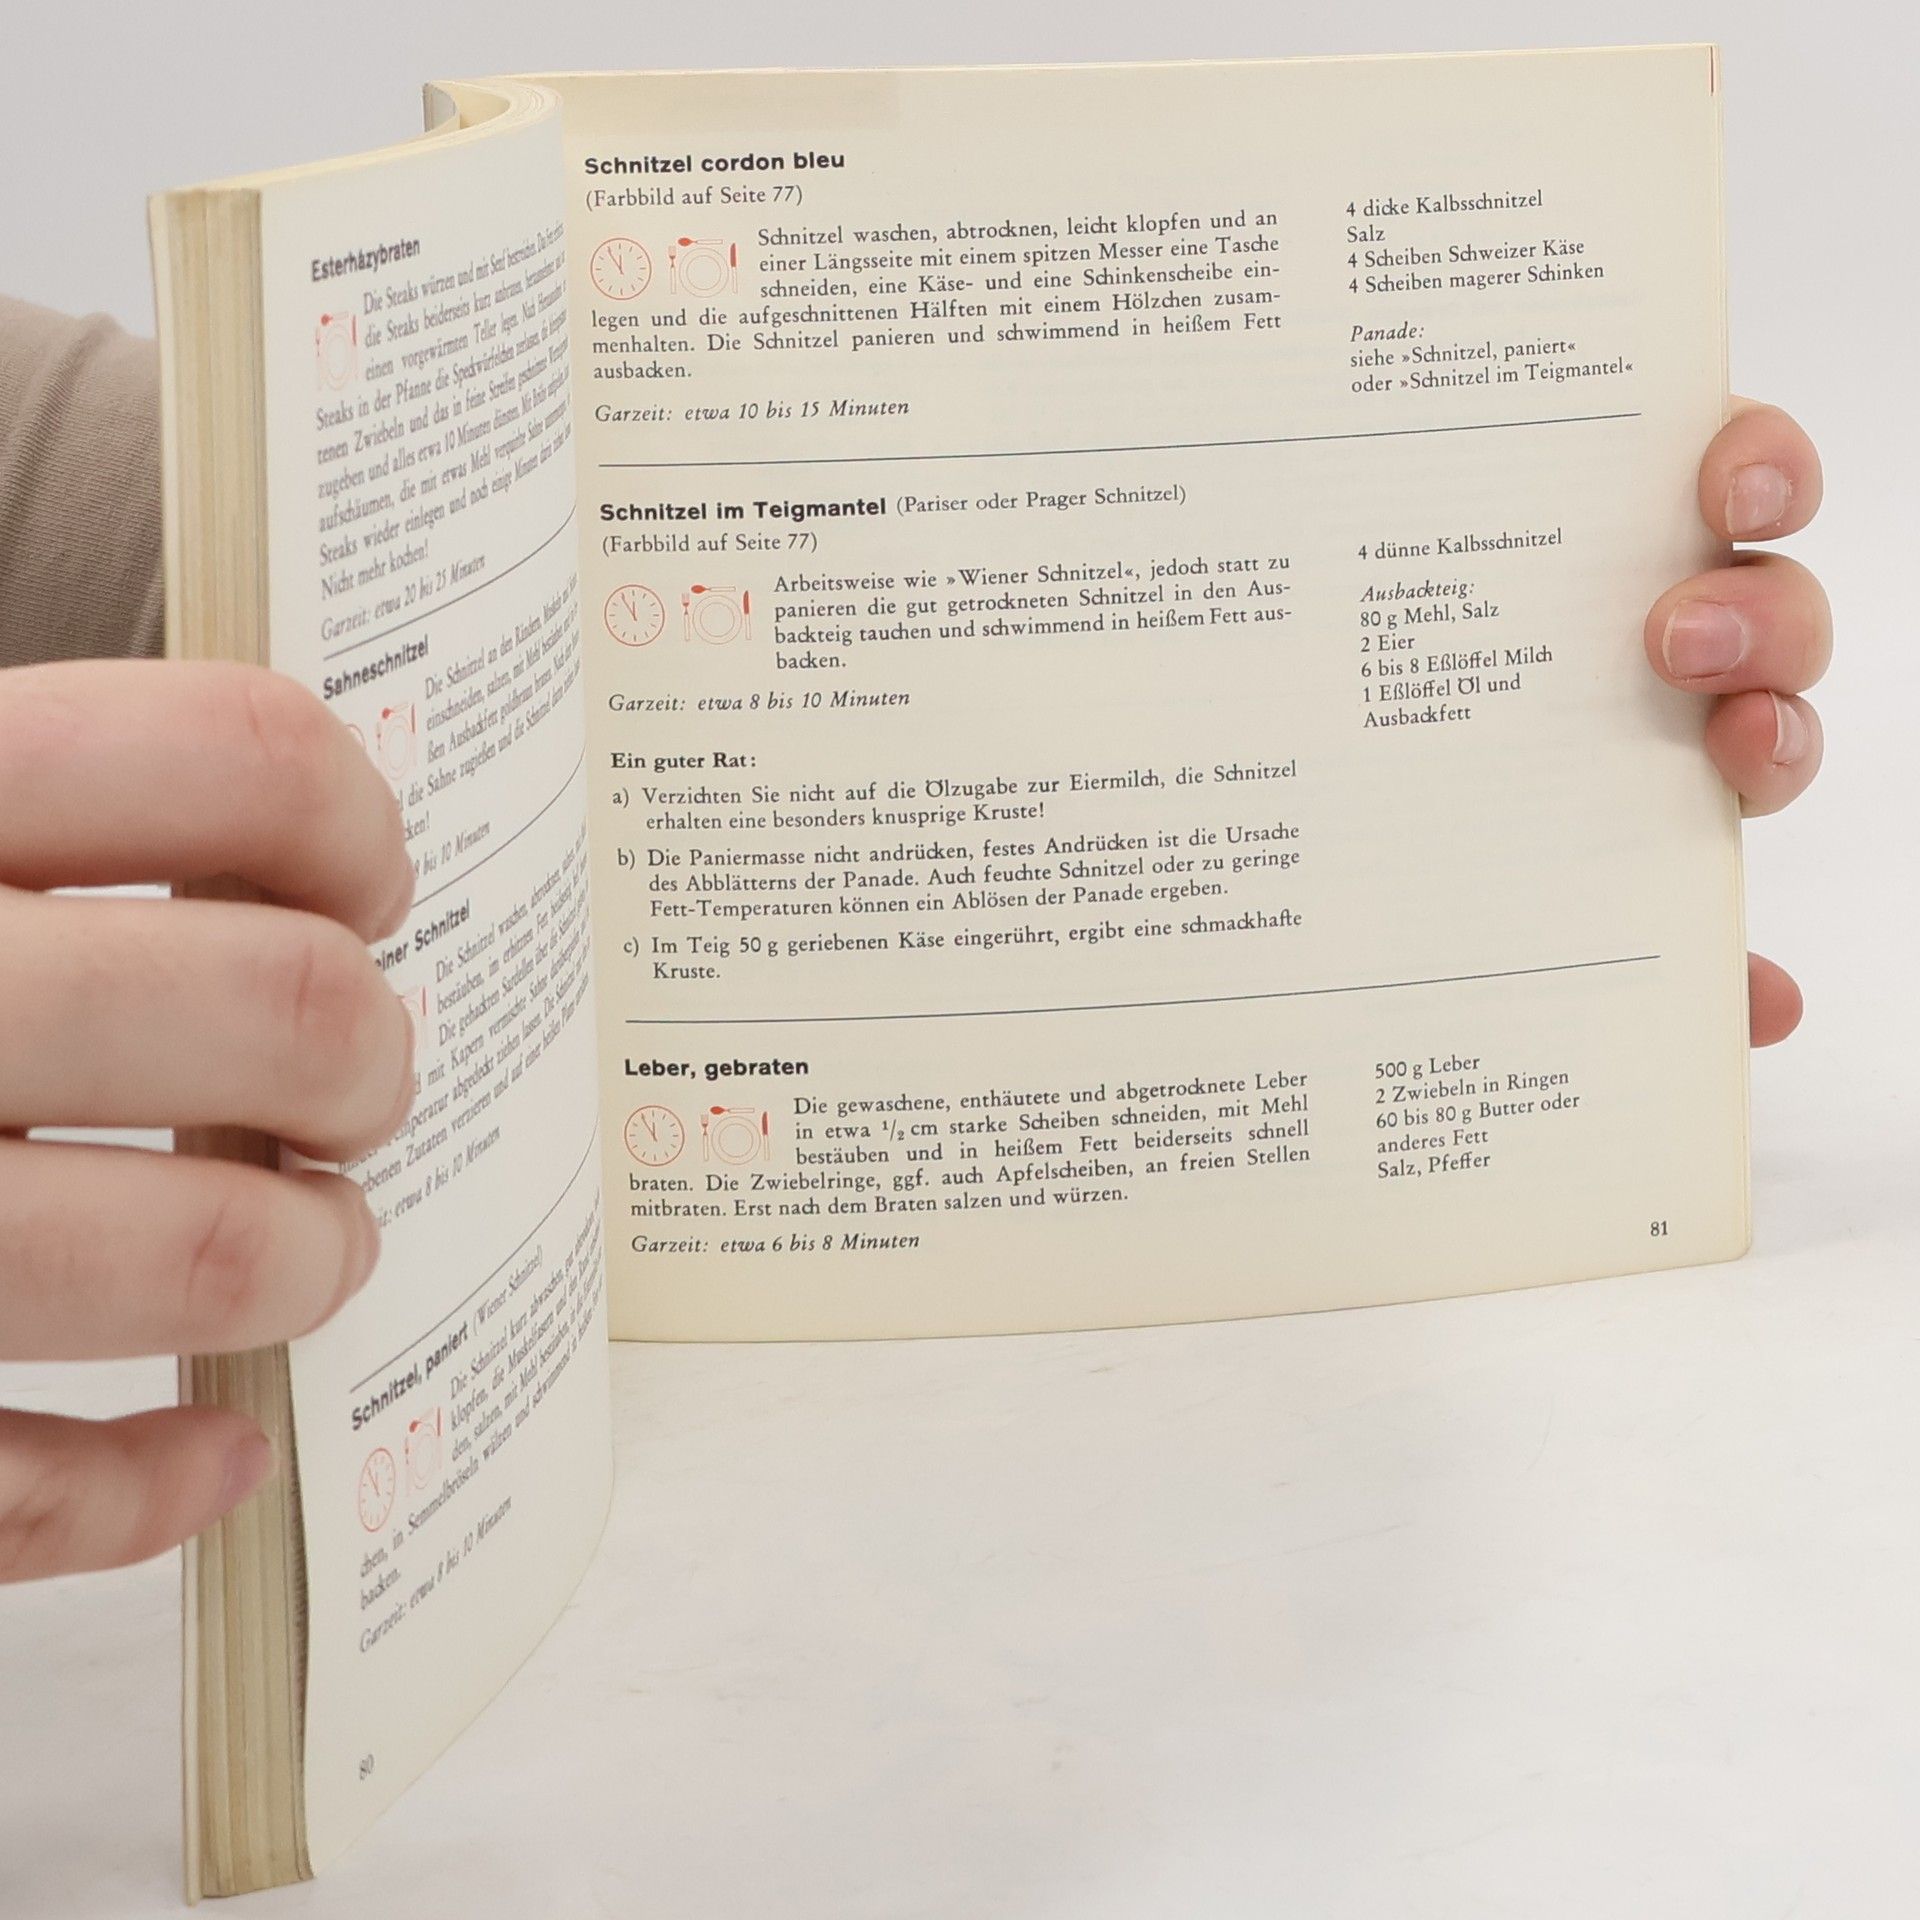 Esterházybraten
Die Steaks würzen und mit Senf bestreichen. Das
die Steaks beiderseits kurz anbraten, herausnehmen
einen vorgewärmten Teller legen. Nach
Steaks in der Pfanne die Speckwürfelchen zerlassen, die
tenen Zwiebeln und das in feine Streifen geschnittene
zugeben und alles etwa 10 Minuten dünsten. Mit Brühe
aufschäumen, die mit etwas Mehl verquirlte Sahne
Steaks wieder einlegen und noch einige Minuten darin
Nicht mehr kochen!
Garzeit: etwa 20 bis 25 Minuten
Sahneschnitzel
Die Schnitzel an den Rändern
einschneiden, salzen, mit Mehl bestäuben
ßen Ausbackfett goldbraun braten. Nach
die Sahne zugießen und die Schnitzel darin
8 bis 10 Minuten
Schnitzel
Die Schnitzel waschen, abtrocknen,
bestäuben, im erhitzten Fett
Die gehackten Sardellen über die Schnitzel
mit Kapern vermischte Sahne
abgedeckt ziehen lassen. Die Schnitzel
Zutaten verzieren und auf einer heißen Platte
etwa 8 bis 10 Minuten
Schnitzel, paniert (Wiener Schnitzel)
Die Schnitzel kurz abwaschen, gut
klopfen, die Muskelfasern und den Rand
den, salzen, mit Mehl bestäuben, in
chen, in Semmelbröseln wälzen und schwimmend in heißem
backen.
Garzeit: etwa 8 bis 10 Minuten
80
Schnitzel cordon bleu
(Farbbild auf Seite 77)
Schnitzel waschen, abtrocknen, leicht klopfen und an
einer Längsseite mit einem spitzen Messer eine Tasche
schneiden, eine Käse- und eine Schinkenscheibe ein-
legen und die aufgeschnittenen Hälften mit einem Hölzchen zusam-
menhalten. Die Schnitzel panieren und schwimmend in heißem Fett
ausbacken.
Garzeit: etwa 10 bis 15 Minuten
4 dicke Kalbsschnitzel
Salz
4 Scheiben Schweizer Käse
4 Scheiben magerer Schinken
Panade:
siehe »Schnitzel, paniert«
oder »Schnitzel im Teigmantel«
Schnitzel im Teigmantel (Pariser oder Prager Schnitzel)
(Farbbild auf Seite 77)
Arbeitsweise wie »Wiener Schnitzel«, jedoch statt zu
panieren die gut getrockneten Schnitzel in den Aus-
backteig tauchen und schwimmend in heißem Fett aus-
backen.
Garzeit: etwa 8 bis 10 Minuten
4 dünne Kalbsschnitzel
Ausbackteig:
80 g Mehl, Salz
2 Eier
6 bis 8 Eßlöffel Milch
1 Eßlöffel Öl und
Ausbackfett
Ein guter Rat:
a) Verzichten Sie nicht auf die Ölzugabe zur Eiermilch, die Schnitzel
erhalten eine besonders knusprige Kruste!
b) Die Paniermasse nicht andrücken, festes Andrücken ist die Ursache
des Abblätterns der Panade. Auch feuchte Schnitzel oder zu geringe
Fett-Temperaturen können ein Ablösen der Panade ergeben.
c) Im Teig 50 g geriebenen Käse eingerührt, ergibt eine schmackhafte
Kruste.
Leber, gebraten
Die gewaschene, enthäutete und abgetrocknete Leber
in etwa 1/2 cm starke Scheiben schneiden, mit Mehl
bestäuben und in heißem Fett beiderseits schnell
braten. Die Zwiebelringe, ggf. auch Apfelscheiben, an freien Stellen
mitbraten. Erst nach dem Braten salzen und würzen.
Garzeit: etwa 6 bis 8 Minuten
500 g Leber
2 Zwiebeln in Ringen
60 bis 80 g Butter oder
anderes Fett
Salz, Pfeffer
81